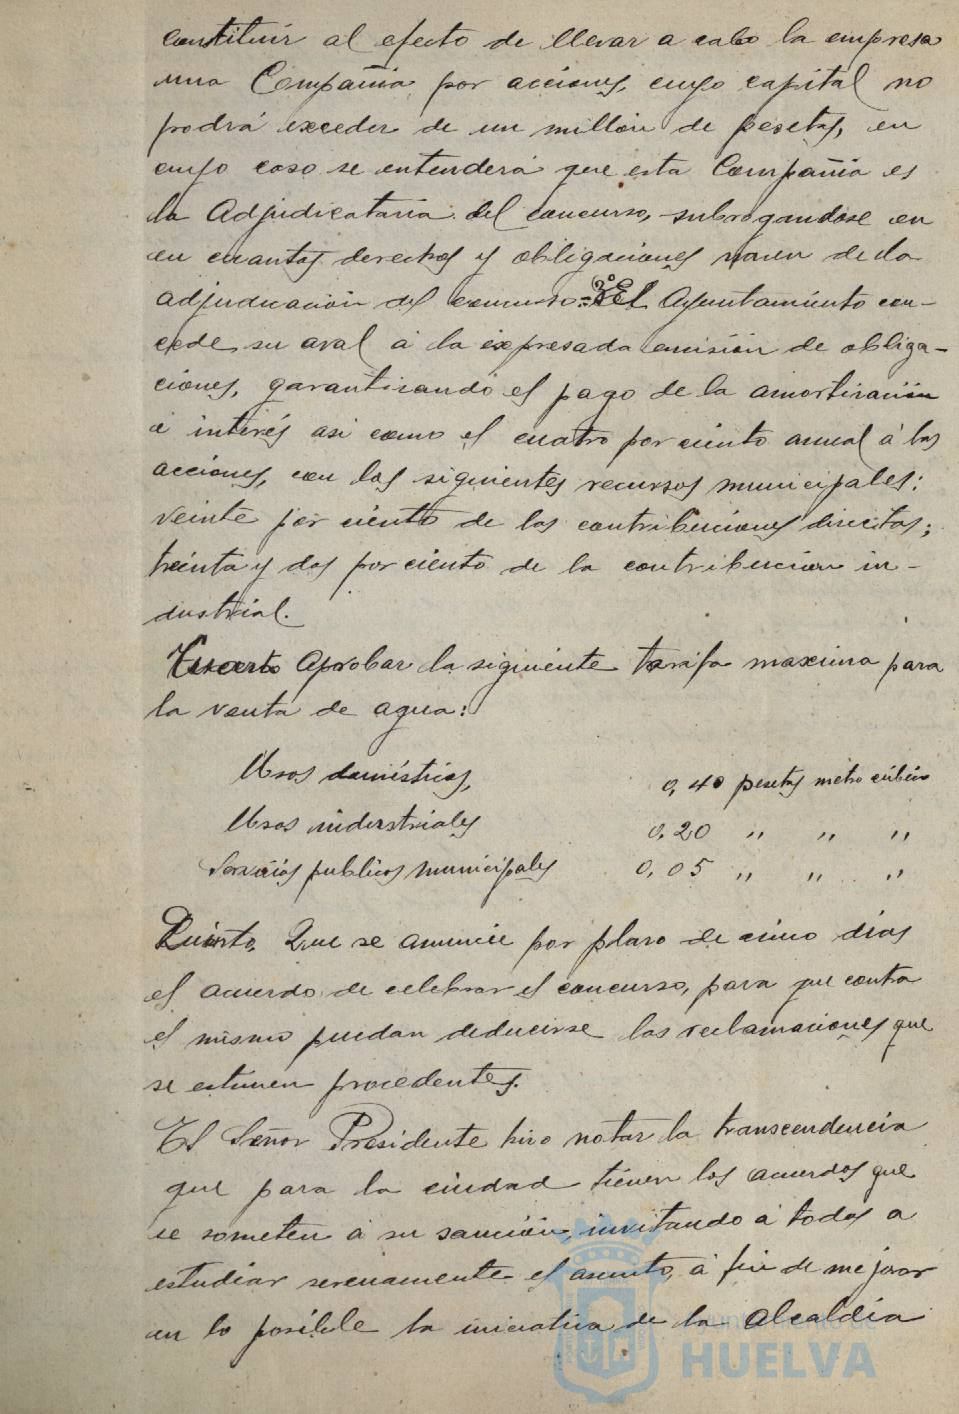 constituir al efecto de llevar a cabo la empresa
una Compañia por acciones, cuyo capital no
podrá exceder de un millón de pesetas, en
cuyo caso se entenderá que esta Compañia es
la Adjudicataria del concurso, subrogandose en
en cuantos derechos y obligaciones nacen de la
adjudicación del concurso.= 3º El Ayuntamiento con-
cede su aval á la expresada emisión de obliga-
ciones, garantizando el pago de la amortización
é interés asi como el cuatro por ciento anual á las
acciones, con los siguientes recursos municipales:
veinte por ciento de las contribuciones directas;
treinta y dos por ciento de la contribucion in-
dustrial.
Cuarto Aprobar la siguiente tarifa maxima para
la venta de agua:
Usos domésticos, 0,40 pesetas metro cúbico
Usos industriales 0,20 " " "
Servicios publicos municipales 0,05 " " "
Quinto. Que se anuncie por plazo de cinco dias
el acuerdo de celebrar el concurso, para que contra
el mismo puedan deducirse las reclamaciones que
se estimen procedentes.
El Señor Presidente hizo notar la transcendencia
que para la ciudad tienen los acuerdos que
se someten á su sanción, invitando á todos a
estudiar serenamente el asunto, á fin de mejorar
en lo posible la iniciativa de la Alcaldía
Ayuntamiento de
HUELVA